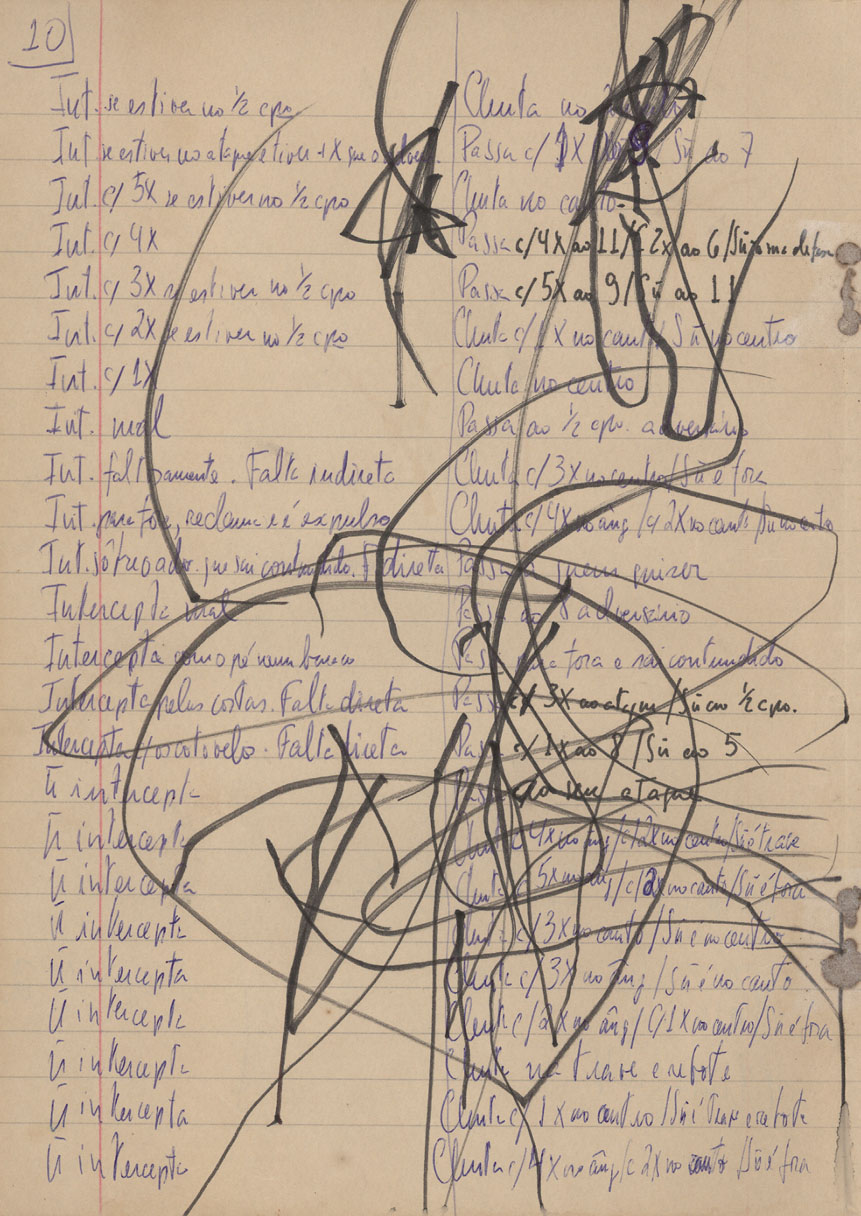 10
Int. se estiver no ½ cpo Chuta no
Int. se estiver no ataque e tiver 1X que o Passa c/ 1X Sñ ao 7
Int. c/ 5X se estiver no ½ cpo Chuta no canto
Int. c/ 4X Passa c/ 4X ao 11/c/ 2X ao 6/Sñ
Int. c/ 3X se estiver no ½ cpo Passa c/ 5X ao 9/Sñ ao 11
Int. c/ 2X se estiver no ½ cpo Chuta c/ 1X no canto/Sñ no centro
Int. c/ 1X Chuta no centro
Int. mal Passa ao ½ cpo. adversário
Int. faltosamente. Falta indireta Chuta c/ 3X no centro/Sñ é fora
Int. para fora, reclama e é expulso Chuta c/ 4X no âng/c/ 2X no canto/Sñ no centro
Int. que sai contundido. F direta Passa a quem quizer
Intercepta mal Passa ao 8 adversário
Intercepta com o pé num buraco Passa para fora e sai contundido
Intercepta pelas costas. Falta direta Passa c/ 3X ao ataque/Sñ ao ½ cpo.
Intercepta c/o cotovelo. Falta direta Passa c/ 1X ao 8/Sñ ao 5
ñ intercepta Passa ao seu ataque
ñ intercepta Chuta c/ 4X no âng/c/ 2X no canto/Sñ é trave
ñ intercepta Chuta c/ 5X no âng/c/ 2X no canto/Sñ é fora
ñ intercepta Chuta c/ 3X no canto/Sñ é no centro
ñ intercepta Chuta c/ 3X no âng/Sñ é no canto
ñ intercepta Chuta c/ 2X no âng/C/ 1X no centro/Sñ é fora
ñ intercepta Chuta na trave e rebote
ñ intercepta Chuta c/ 1X no centro/Sñ é Trave e rebote
ñ intercepta Chuta c/ 4X no âng/c 2X no canto/Sñ é fora